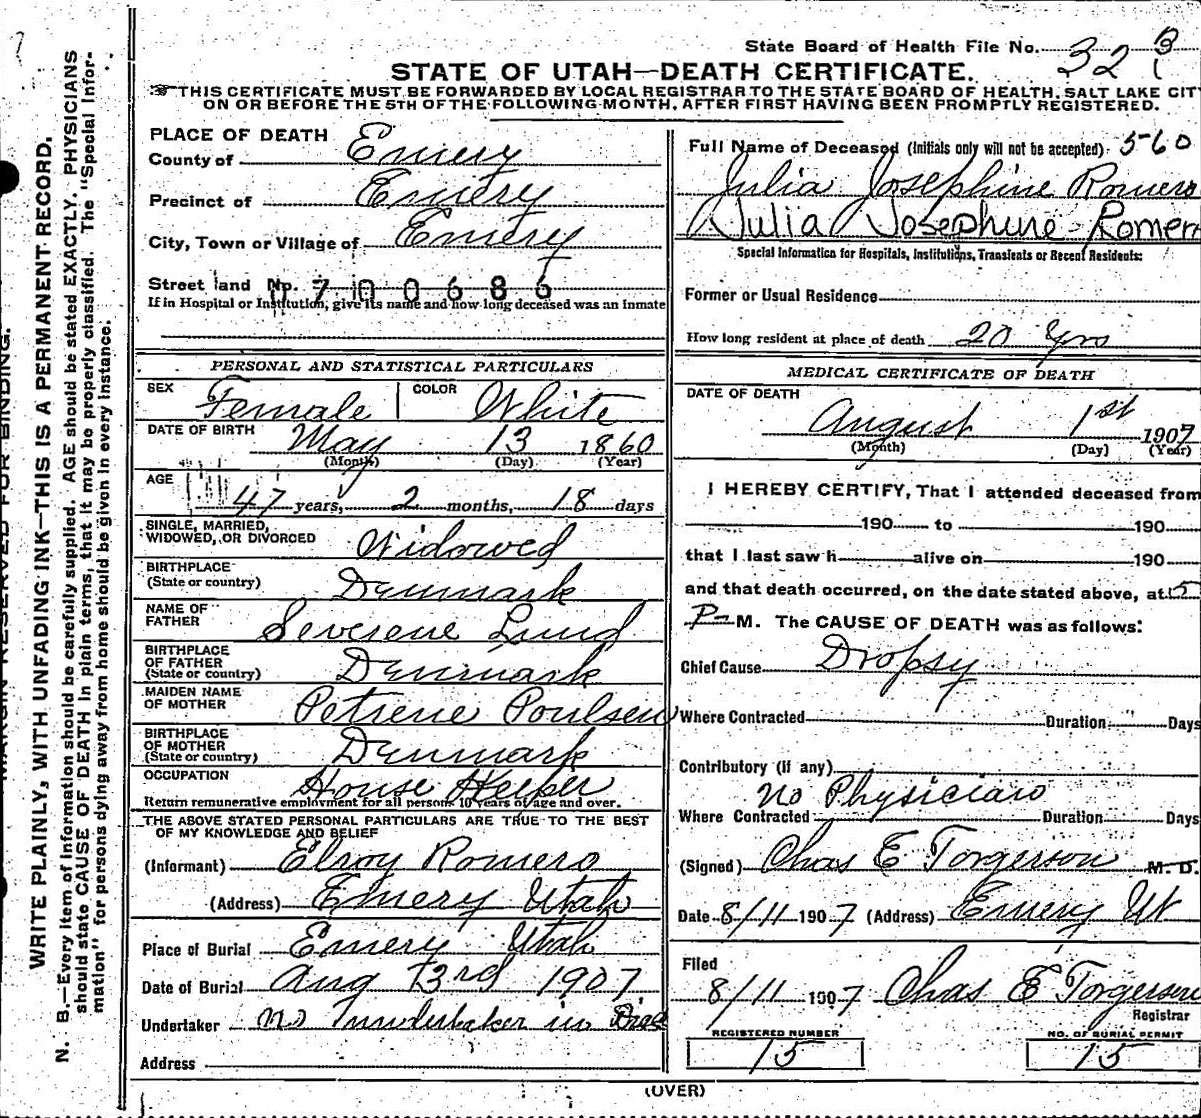 State Board of Health File No. 323
STATE OF UTAH—DEATH CERTIFICATE.
THIS CERTIFICATE MUST BE FORWARDED BY LOCAL REGISTRAR TO THE STATE BOARD OF HEALTH, SALT LAKE CITY
ON OR BEFORE THE 5TH OF THE FOLLOWING MONTH, AFTER FIRST HAVING BEEN PROMPTLY REGISTERED.
MARGIN RESERVED FOR BINDING.
WRITE PLAINLY, WITH UNFADING INK—THIS IS A PERMANENT RECORD.
N. B.—Every item of information should be carefully supplied. AGE should be stated EXACTLY. PHYSICIANS
should state CAUSE OF DEATH in plain terms, that it may be properly classified. The "Special Infor-
mation" for persons dying away from home should be given in every instance.
PLACE OF DEATH
County of Emery
Precinct of Emery
City, Town or Village of Emery
Street and No. 0700686
If in Hospital or Institution, give its name and how long deceased was an inmate
PERSONAL AND STATISTICAL PARTICULARS
SEX Female COLOR White
DATE OF BIRTH May 13 1860
(Month) (Day) (Year)
AGE 47 years, 2 months, 18 days
SINGLE, MARRIED,
WIDOWED, OR DIVORCED Widowed
BIRTHPLACE
(State or country) Denmark
NAME OF
FATHER Severene Lund
BIRTHPLACE
OF FATHER
(State or country) Denmark
MAIDEN NAME
OF MOTHER Petrene Poulsen
BIRTHPLACE
OF MOTHER
(State or country) Denmark
OCCUPATION House Keeper
Return remunerative employment for all persons 10 years of age and over.
THE ABOVE STATED PERSONAL PARTICULARS ARE TRUE TO THE BEST
OF MY KNOWLEDGE AND BELIEF
(Informant) Elroy Romero
(Address) Emery Utah
Place of Burial Emery Utah
Date of Burial Aug 3rd 1907
Undertaker No Tunderbaker in
Address
Full Name of Deceased (Initials only will not be accepted) 560
Julia Josephine Romero
Julia Josephine Romero
Special Information for Hospitals, Institutions, Transients or Recent Residents:
Former or Usual Residence
How long resident at place of death 20 Yrs
MEDICAL CERTIFICATE OF DEATH
DATE OF DEATH
August 1st 1907
(Month) (Day) (Year)
I HEREBY CERTIFY, That I attended deceased from
190 to 190
that I last saw h alive on 190
and that death occurred, on the date stated above, at 5
P M. The CAUSE OF DEATH was as follows:
Chief Cause Dropsy
Where Contracted Duration Days
Contributory (if any)
No Physician
Where Contracted Duration Days
(Signed) Chas E Torgerson M. D.
Date 8/11 1907 (Address) Emery Ut
Filed
8/11 1907 Chas E Torgerson
Registrar
REGISTERED NUMBER NO. OF BURIAL PERMIT
15 15
(OVER)